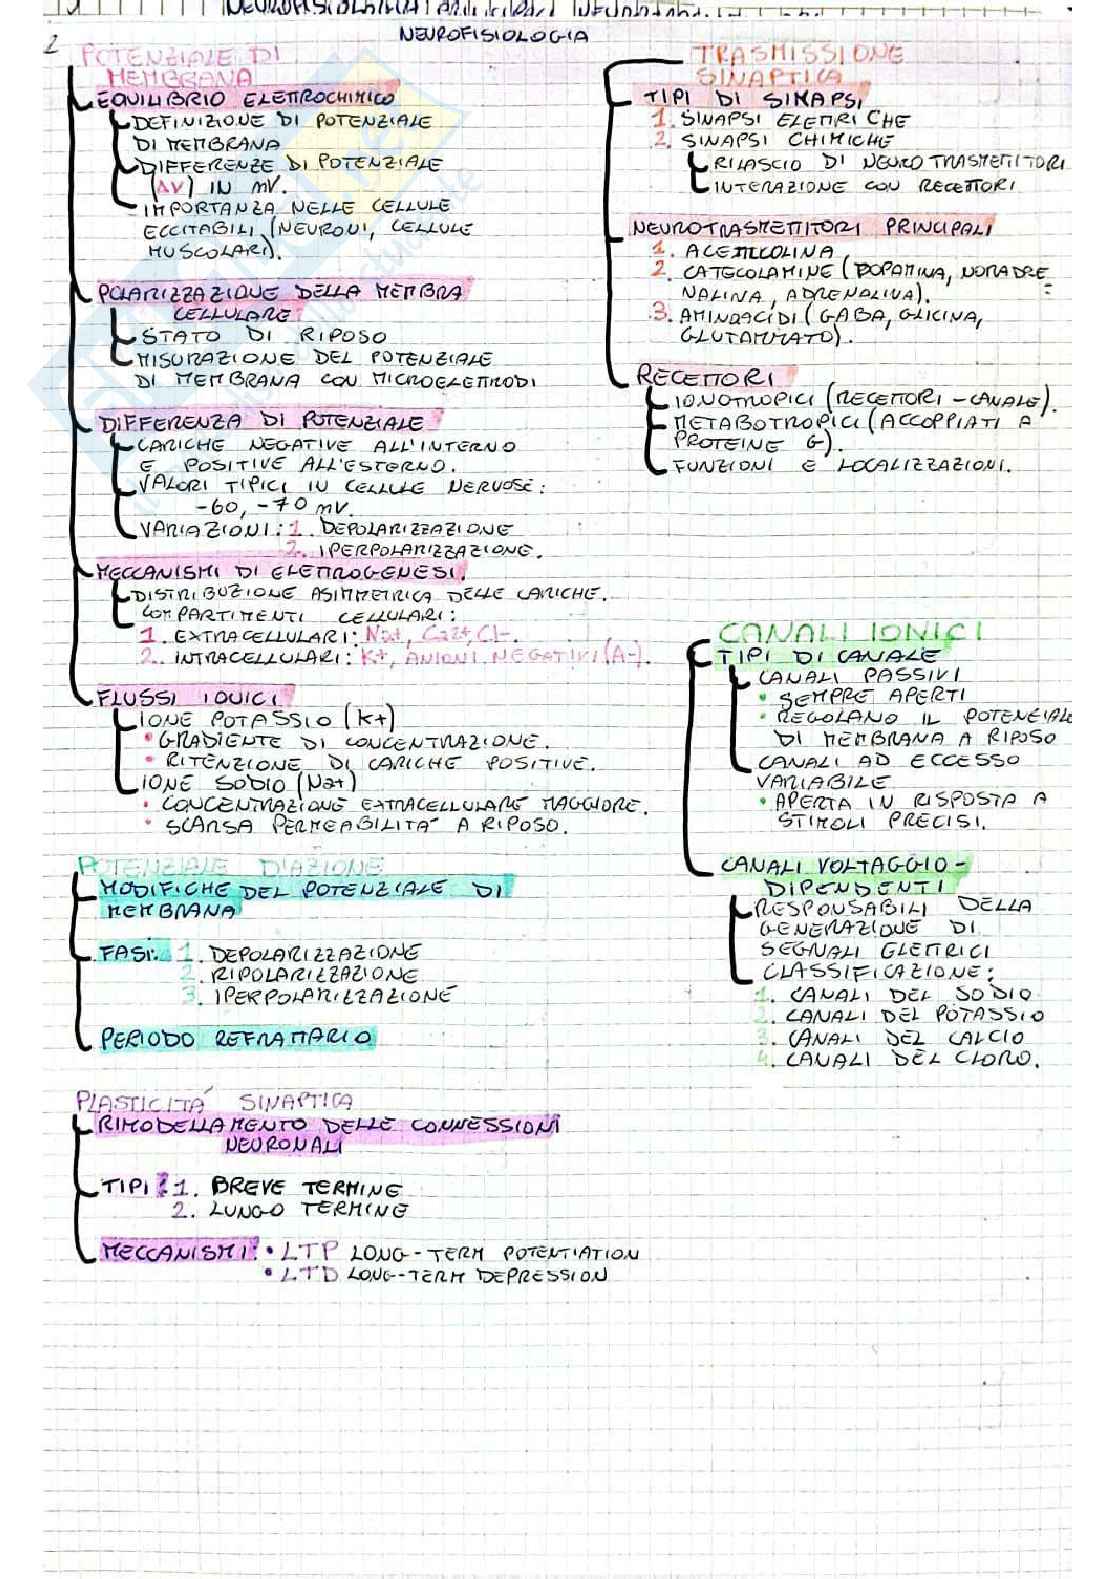 2
NEUROFISIOLOGIA
POTENZIALE DI
MEMBRANA
EQUILIBRIO ELETTROCHIMICO
DEFINIZIONE DI POTENZIALE
DI MEMBRANA
DIFFERENZE DI POTENZIALE
(ΔV) IN mV.
IMPORTANZA NELLE CELLULE
ECCITABILI (NEURONI, CELLULE
MUSCOLARI).
POLARIZZAZIONE DELLA MEMBRA
CELLULARE
STATO DI RIPOSO
MISURAZIONE DEL POTENZIALE
DI MEMBRANA CON MICROELETTRODI
DIFFERENZA DI POTENZIALE
CARICHE NEGATIVE ALL'INTERNO
E POSITIVE ALL'ESTERNO.
VALORI TIPICI IN CELLULE NERVOSE:
-60, -70 mV.
VARIAZIONI: 1. DEPOLARIZZAZIONE
2. IPERPOLARIZZAZIONE.
MECCANISMI DI ELETTROGENESI.
DISTRIBUZIONE ASIMMETRICA DELLE CARICHE.
COMPARTIMENTI CELLULARI:
1. EXTRACELLULARI: Na+, Ca2+, Cl-.
2. INTRACELLULARI: K+, ANIONI NEGATIVI (A-).
FLUSSI IONICI
IONE POTASSIO (K+)
• GRADIENTE DI CONCENTRAZIONE.
• RITENZIONE DI CARICHE POSITIVE.
IONE SODIO (Na+)
• CONCENTRAZIONE EXTRACELLULARE MAGGIORE.
• SCARSA PERMEABILITA' A RIPOSO.
POTENZIALE D'AZIONE
MODIFICHE DEL POTENZIALE DI
MEMBRANA
FASI: 1. DEPOLARIZZAZIONE
2. RIPOLARIZZAZIONE
3. IPERPOLARIZZAZIONE
PERIODO REFRATTARIO
PLASTICITA' SINAPTICA
RIMODELLAMENTO DELLE CONNESSIONI
NEURONALI
TIPI: 1. BREVE TERMINE
2. LUNGO TERMINE
MECCANISMI: • LTP LONG-TERM POTENTIATION
• LTD LONG-TERM DEPRESSION
TRASMISSIONE
SINAPTICA
TIPI DI SINAPSI
1. SINAPSI ELETTRICHE
2. SINAPSI CHIMICHE
RILASCIO DI NEUROTRASMETTITORI
INTERAZIONE CON RECETTORI
NEUROTRASMETTITORI PRINCIPALI
1. ACETILCOLINA
2. CATECOLAMINE (DOPAMINA, NORADRE
NALINA, ADRENALINA).
3. AMINOACIDI (GABA, GLICINA,
GLUTAMMATO).
RECETTORI
IONOTROPICI (RECETTORI-CANALE).
METABOTROPICI (ACCOPPIATI A
PROTEINE G).
FUNZIONI E LOCALIZZAZIONI.
CANALI IONICI
TIPI DI CANALE
CANALI PASSIVI
• SEMPRE APERTI
• REGOLANO IL POTENZIALE
DI MEMBRANA A RIPOSO
CANALI AD ECCESSO
VARIABILE
• APERTA IN RISPOSTA A
STIMOLI PRECISI.
CANALI VOLTAGGIO-
DIPENDENTI
RESPONSABILI DELLA
GENERAZIONE DI
SEGNALI ELETTRICI
CLASSIFICAZIONE:
1. CANALI DEL SODIO
2. CANALI DEL POTASSIO
3. CANALI DEL CALCIO
4. CANALI DEL CLORO.